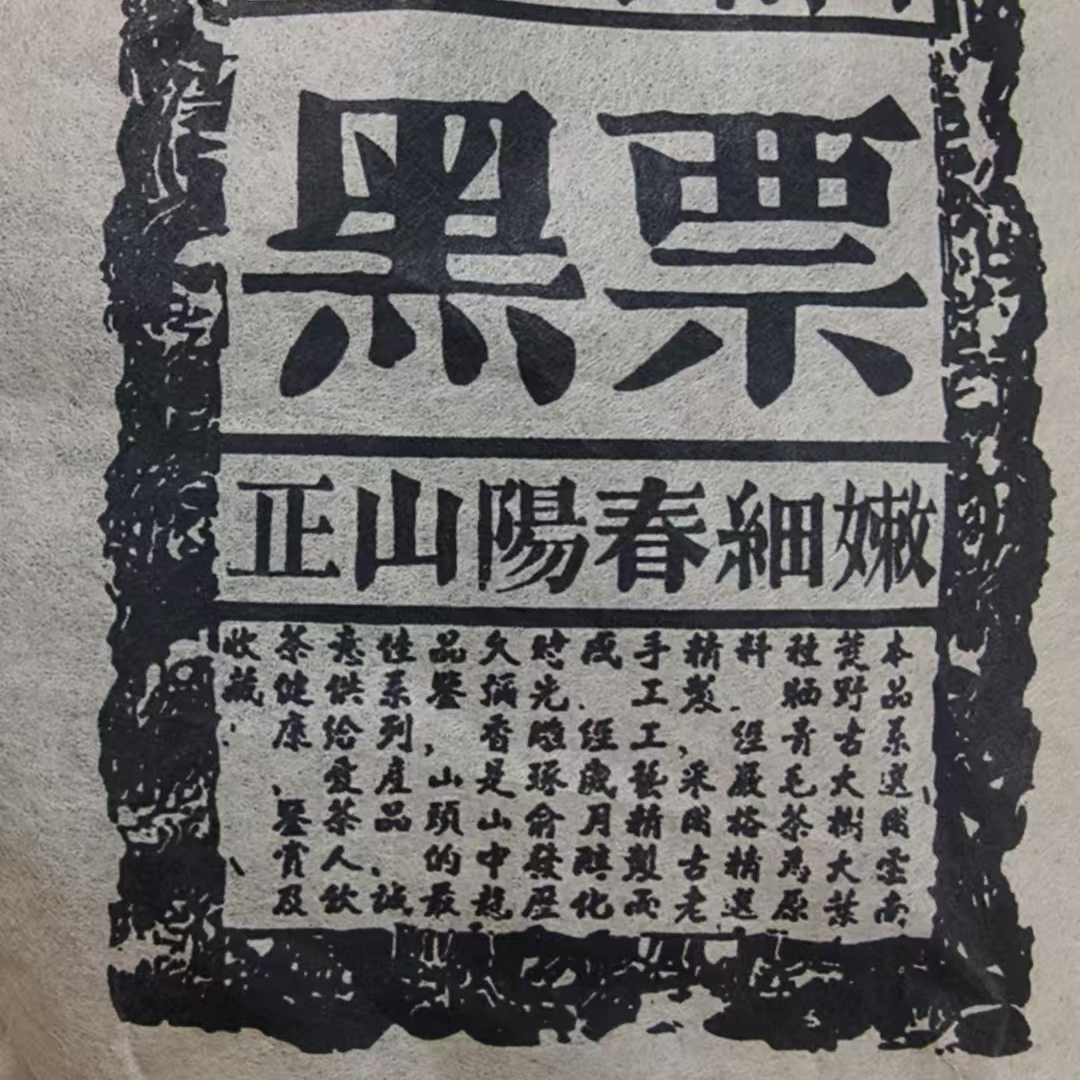 黑票
正山陽春細嫩
本品系選用雲南、
荒野古大樹大葉
種晒青毛茶為原
料.經嚴格精選
精製,采用古老
手工工藝精製而
成.經歲月醇化
雕琢俞發歷
久彌香是山中極
品鑒,山頭的最
佳系列產品、誠
意供給愛茶人飲
茶健康、鑒賞及
收藏.